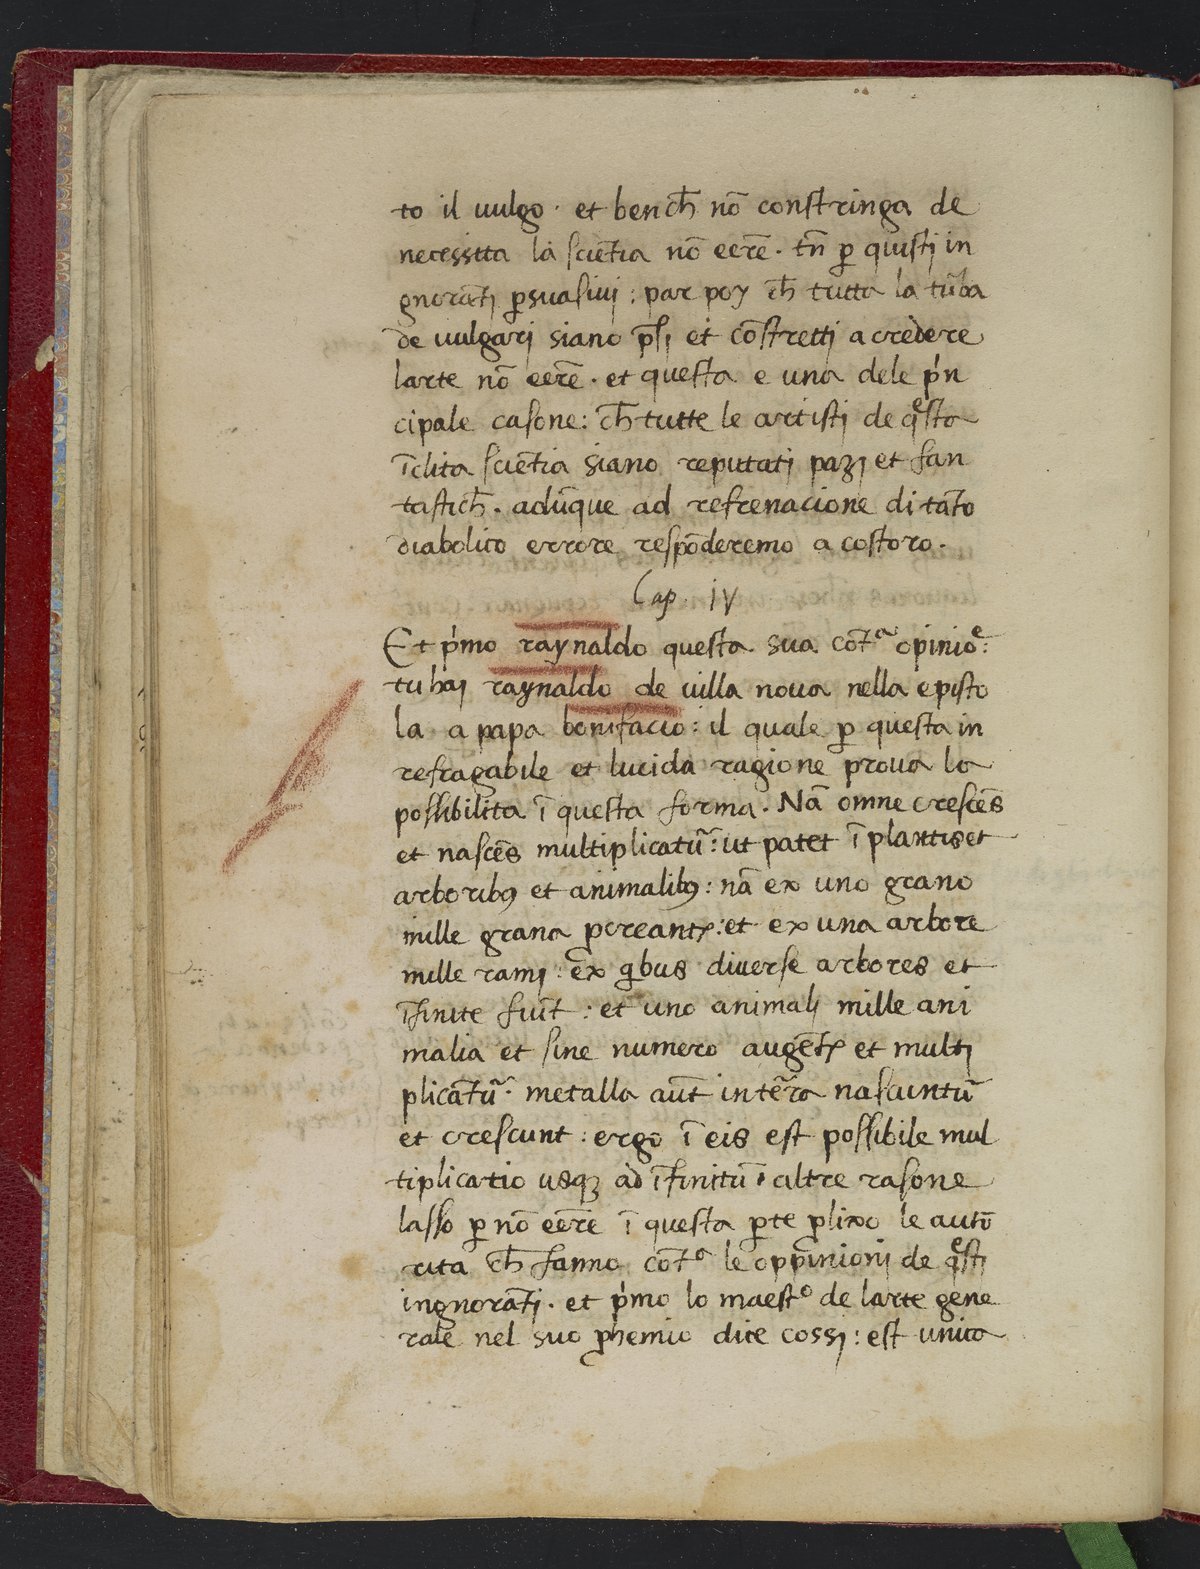 to il uulgo · et bench̄ nō constringa de
necessita la sciētia nō eēre · tn̄ ꝑ quisti in
gnorāti ꝑsuasiui : par poy ch̄ tutta la tūba
de uulgarj siano p̄si et cōstretti a credere
larte nō eēre · et questa e una dele p'n
cipale casone : ch̄ tutte le artisti de qͤsta
īclita sciētia siano reputati pazi et fan
tastich̄ · adūque ad refrenacione di tāto
diabolico errore respōderemo a costoro ·
Cap. IV
Et p'mo raynaldo questa sua cōtᵃ opinioᵉ :
tu haj raynaldo de uilla noua nella episto
la a papa bonifacio : il quale ꝑ questa in
refragabile et lucida ragione proua la
possibilita ī questa forma · Nā omne crescēs
et nascēs multiplicatū : ut patet ī plantis et
arboribꝯ et animalibꝯ : nā ex uno grano
mille grana ꝓcreantꝝ : et ex una arbore
mille ramj : ex qͥbus diuerse arbores et
īfinite fuīt : et uno animali mille ani
malia et sine numero augētꝝ et multi
plicātū · metalla aūt in tēra nascuntū
et crescunt : ergo ī eis est possibile mul
tiplicatio usqꝫ ad īfinitū · altre rasone
lasso ꝑ nō eēre ī questa ꝑte ꝓlixo le auto
rita ch̄ fanno cōtᵃ le oppinionj de qͤsti
ingnorāti · et p'mo lo maestᵒ de larte gene
rale nel suo ꝓhemio dice cossi : est unica